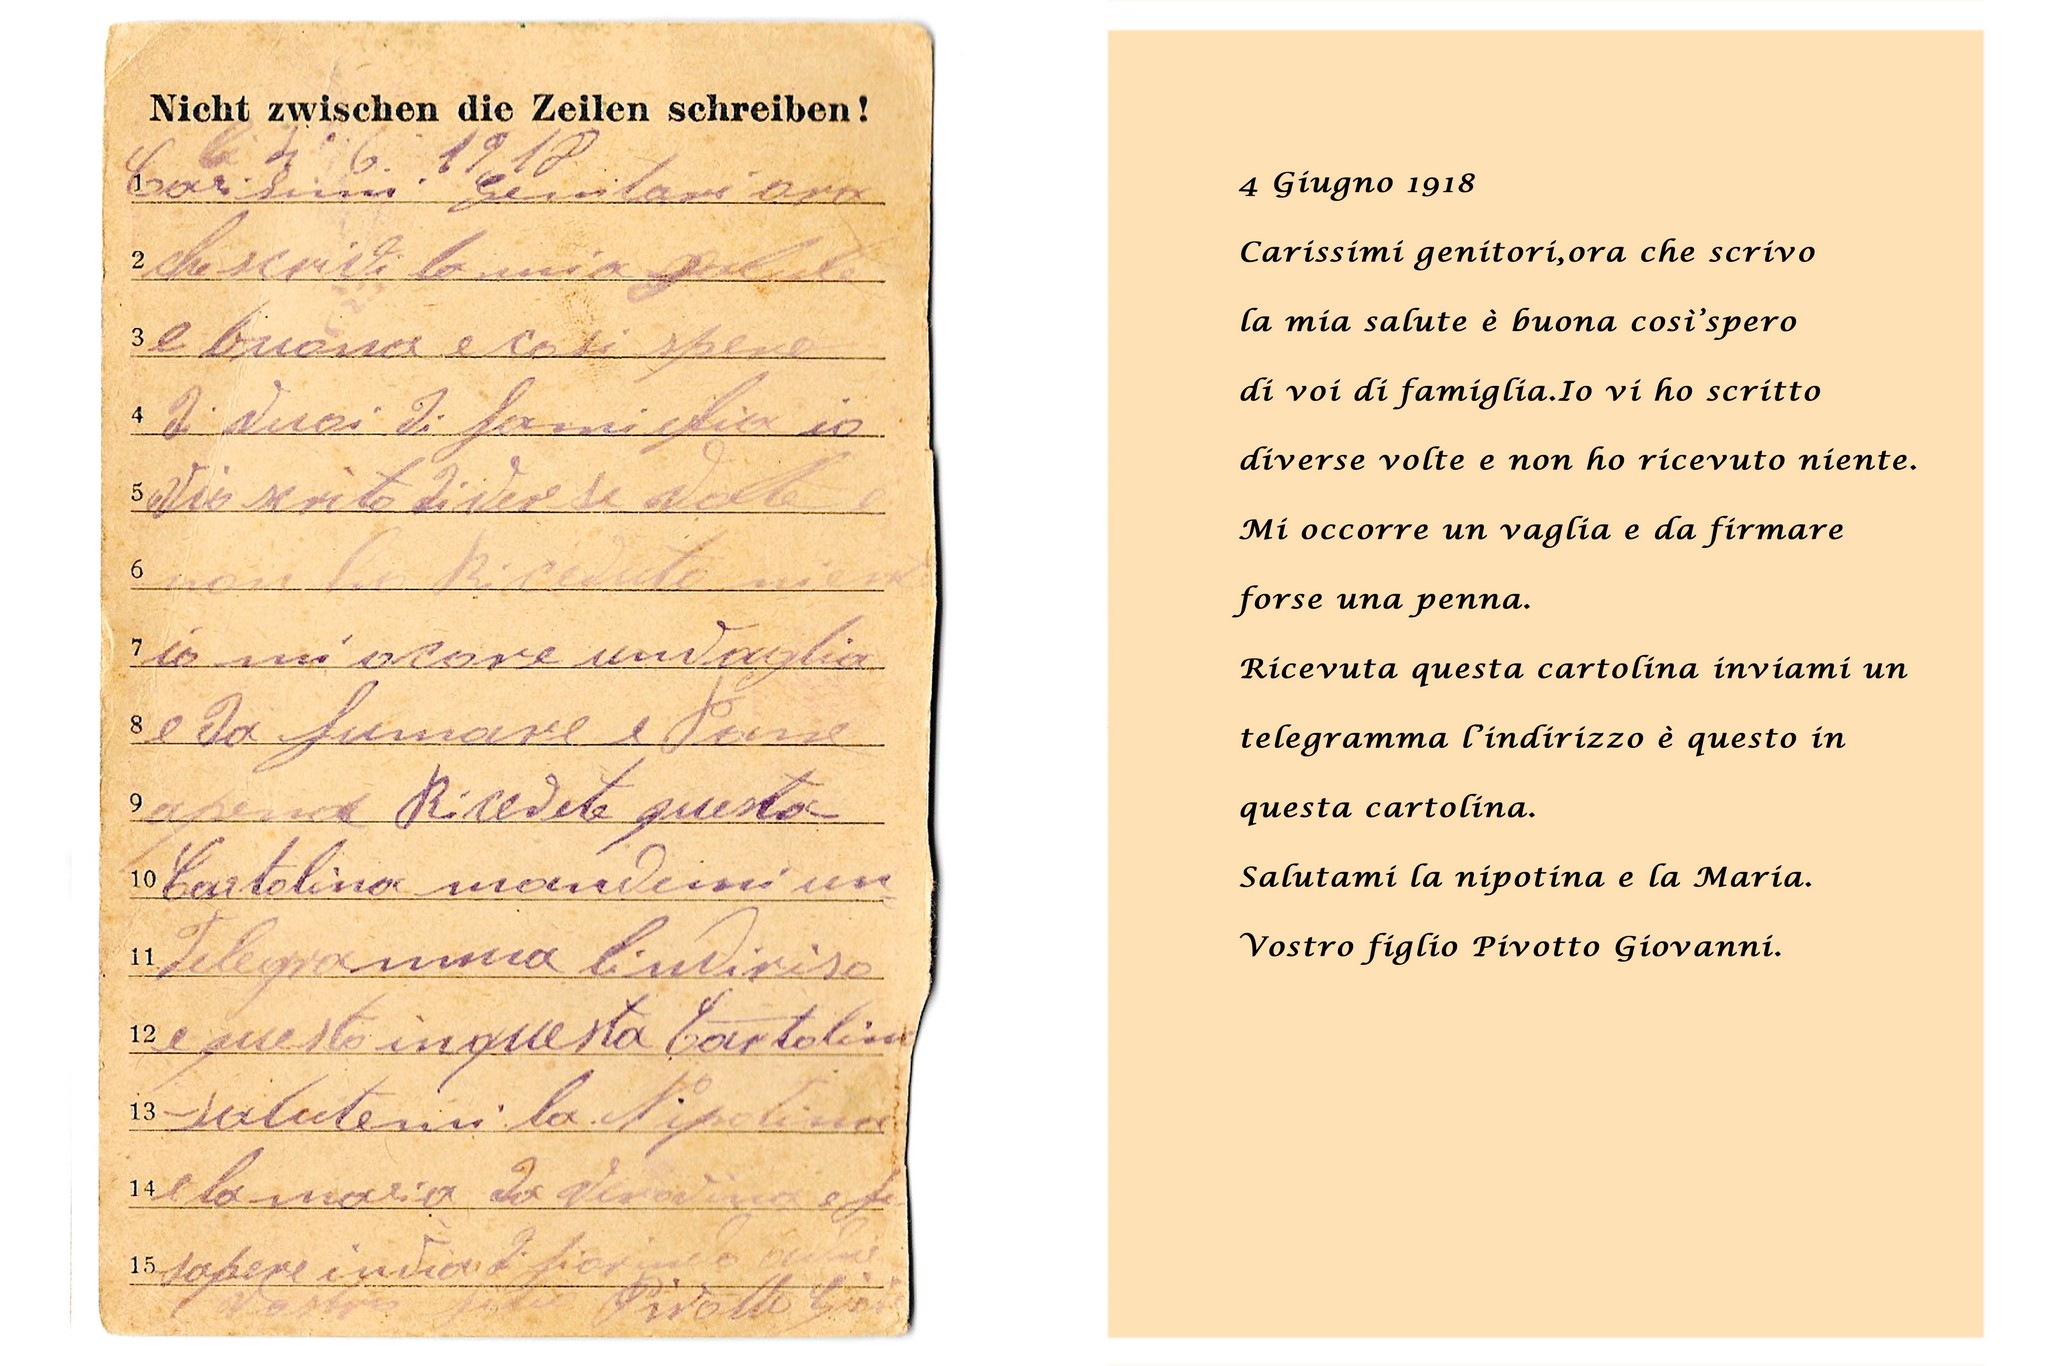 Nicht zwischen die Zeilen schreiben!
li 4. 6. 1918
1 Carisimi Genitari ora
2 che scrivi la mia salute
3 e buona e cosi spero
4 di vuoi di famiglia io
5 vio scrito diverse volte e
6 non ho Riceduto
7 io mi ocore un vaglia
8 e da fumare e Pane
9 apena Ricevete questa
10 Cartolina mandemi un
11 Telegramma lindiriso
12 e questo in questa Cartolin
13 salutemi la Nipotina
14 e la maria da
15 sapere
Vostro Pivotto
4 Giugno 1918
Carissimi genitori,ora che scrivo
la mia salute è buona così'spero
di voi di famiglia.Io vi ho scritto
diverse volte e non ho ricevuto niente.
Mi occorre un vaglia e da firmare
forse una penna.
Ricevuta questa cartolina inviami un
telegramma l'indirizzo è questo in
questa cartolina.
Salutami la nipotina e la Maria.
Vostro figlio Pivotto Giovanni.